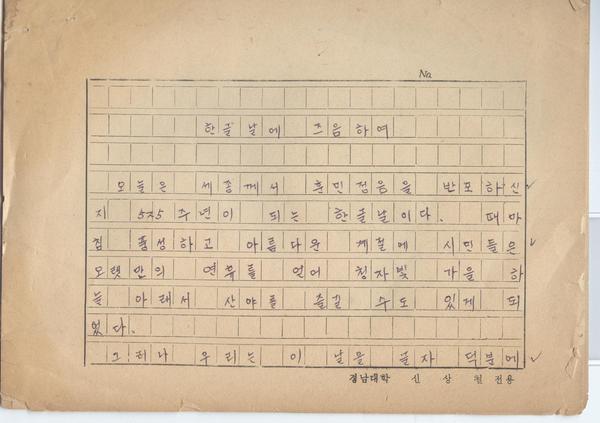 No.
한글날에 즈음하여
오늘은 세종께서 훈민정음을 반포하신
지 525주년이 되는 한글날이다. 때마
침 풍성하고 아름다운 계절에 시민들은
오랫만의 연휴를 얻어 청자빛 가을 하
늘 아래서 산야를 즐길 수도 있게 되
었다.
그러나 우리는 이 날을 글자 덕분에
경남대학 신상철 전용